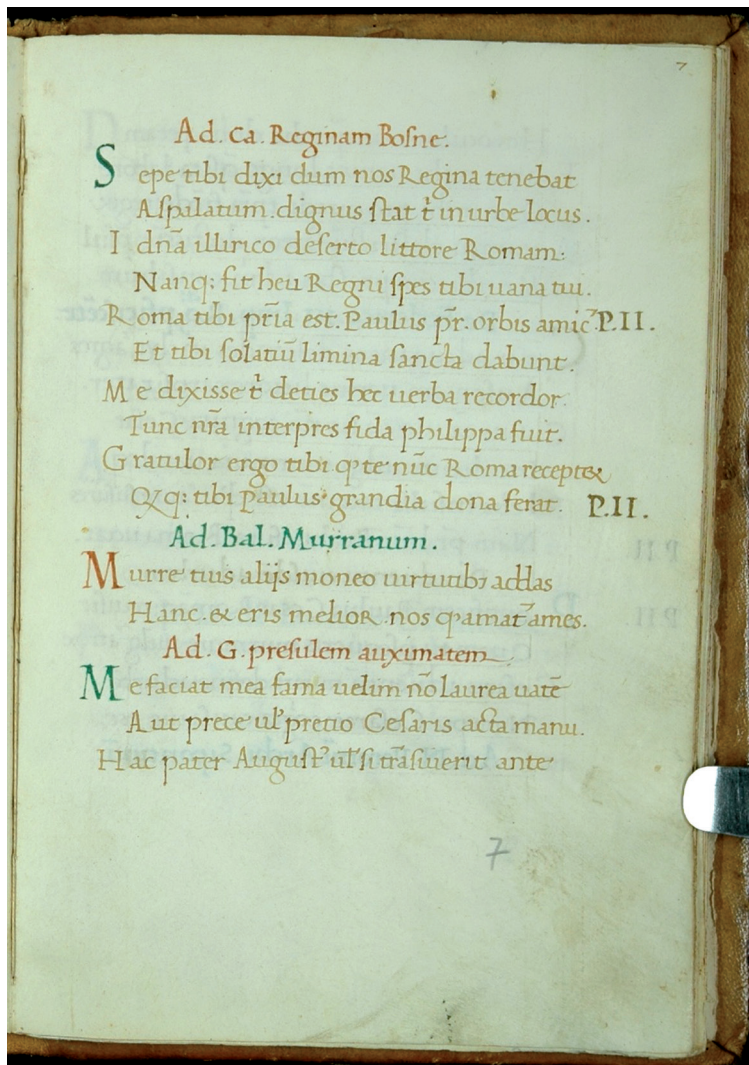 7
Ad. Ca. Reginam Bosne.
Sepe tibi dixi dum nos Regina tenebat
Aspalatum. dignus stat t̄ in urbe locus.
I dn̄a illirico deserto littore Romam:
Nanq; fit heu Regni spes tibi uana tui.
Roma tibi pr̄ia est. Paulus pr̄. orbis amic᷒ P.II.
Et tibi solatiū limina sancta dabunt.
Me dixisse t̄ deties hec uerba recordor.
Tunc nr̄a interpres fida philippa fuit.
Gratulor ergo tibi ꝙ te nūc Roma receptet
Qq; tibi Paulus grandia dona ferat. P.II.
Ad. Bal. Murranum.
Murre tuis alijs moneo uirtutibꝫ addas
Hanc. & eris melior. nos ꝙ amat᷒ ames.
Ad. G. presulem auximatem
Me faciat mea fama uelim nō laurea uatē
Aut prece ul̓ pretio Cesaris acta manu.
Hac pater August᷒ ul̓ si trāsiuerit ante
7